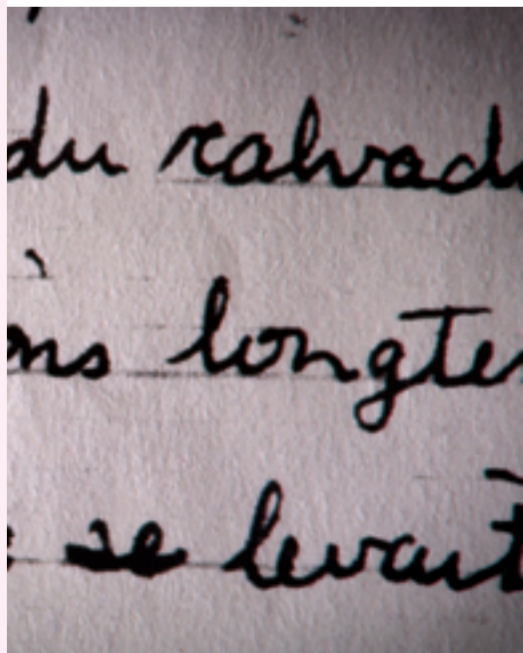 du calvad
ns longte
se levait